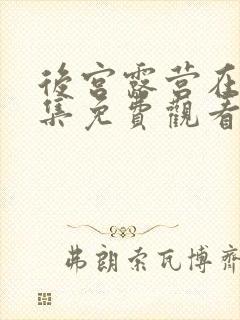 後宮露营在
集免費觀看
弗朗索瓦博齊